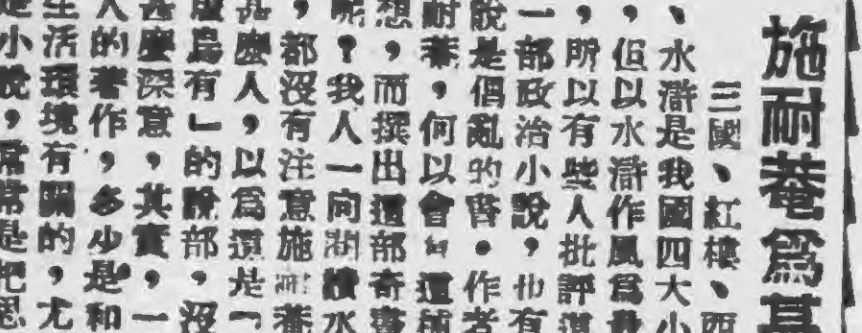 施耐菴爲甚
三國、紅樓、西
、水滸是我國四大小
,但以水滸作風爲最
,所以有些人批評這
一部政治小說,也有
說是倡亂的書。作者
耐菴,何以會有這種
想,而撰出這部奇書
呢?我人一向閱讀水
,都沒有注意施耐菴
甚麼人,以爲這是「
虛烏有」的說部,沒
甚麼深意,其實,一
人的著作,多少是和
生活環境有關的,尤
是小說,常常是把思